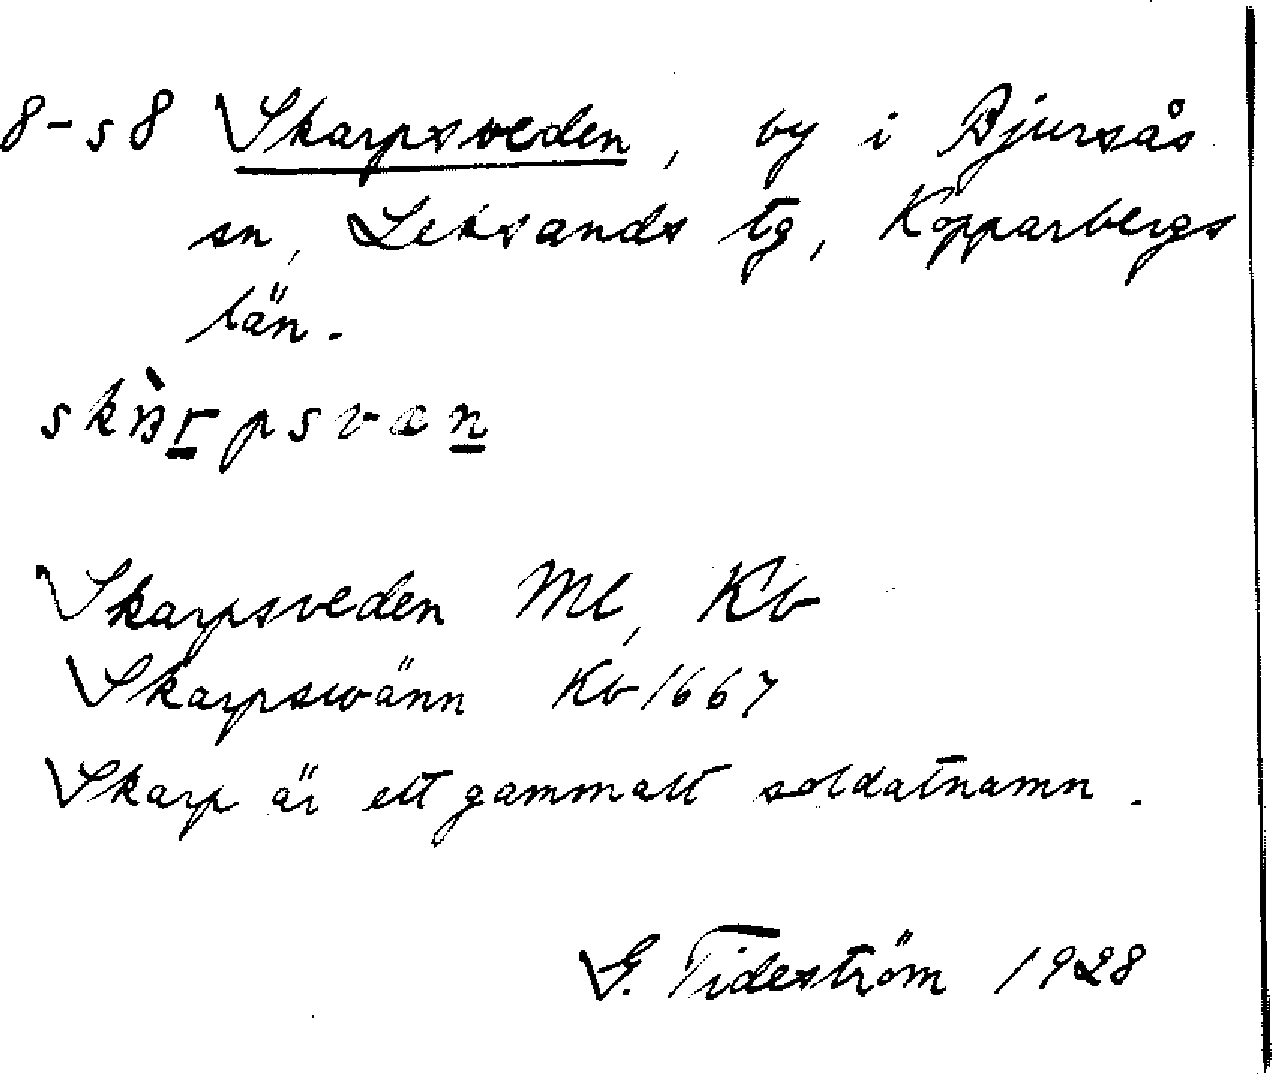 8-s8 Skarpsveden, by i Bjursås
sn, Leksands tg, Kopparbergs
län.
Skarpsveden Ml, Kb
Skarpswänn Kb 1667
Skarp är ett gammalt soldatnamn.
G. Tideström 1928